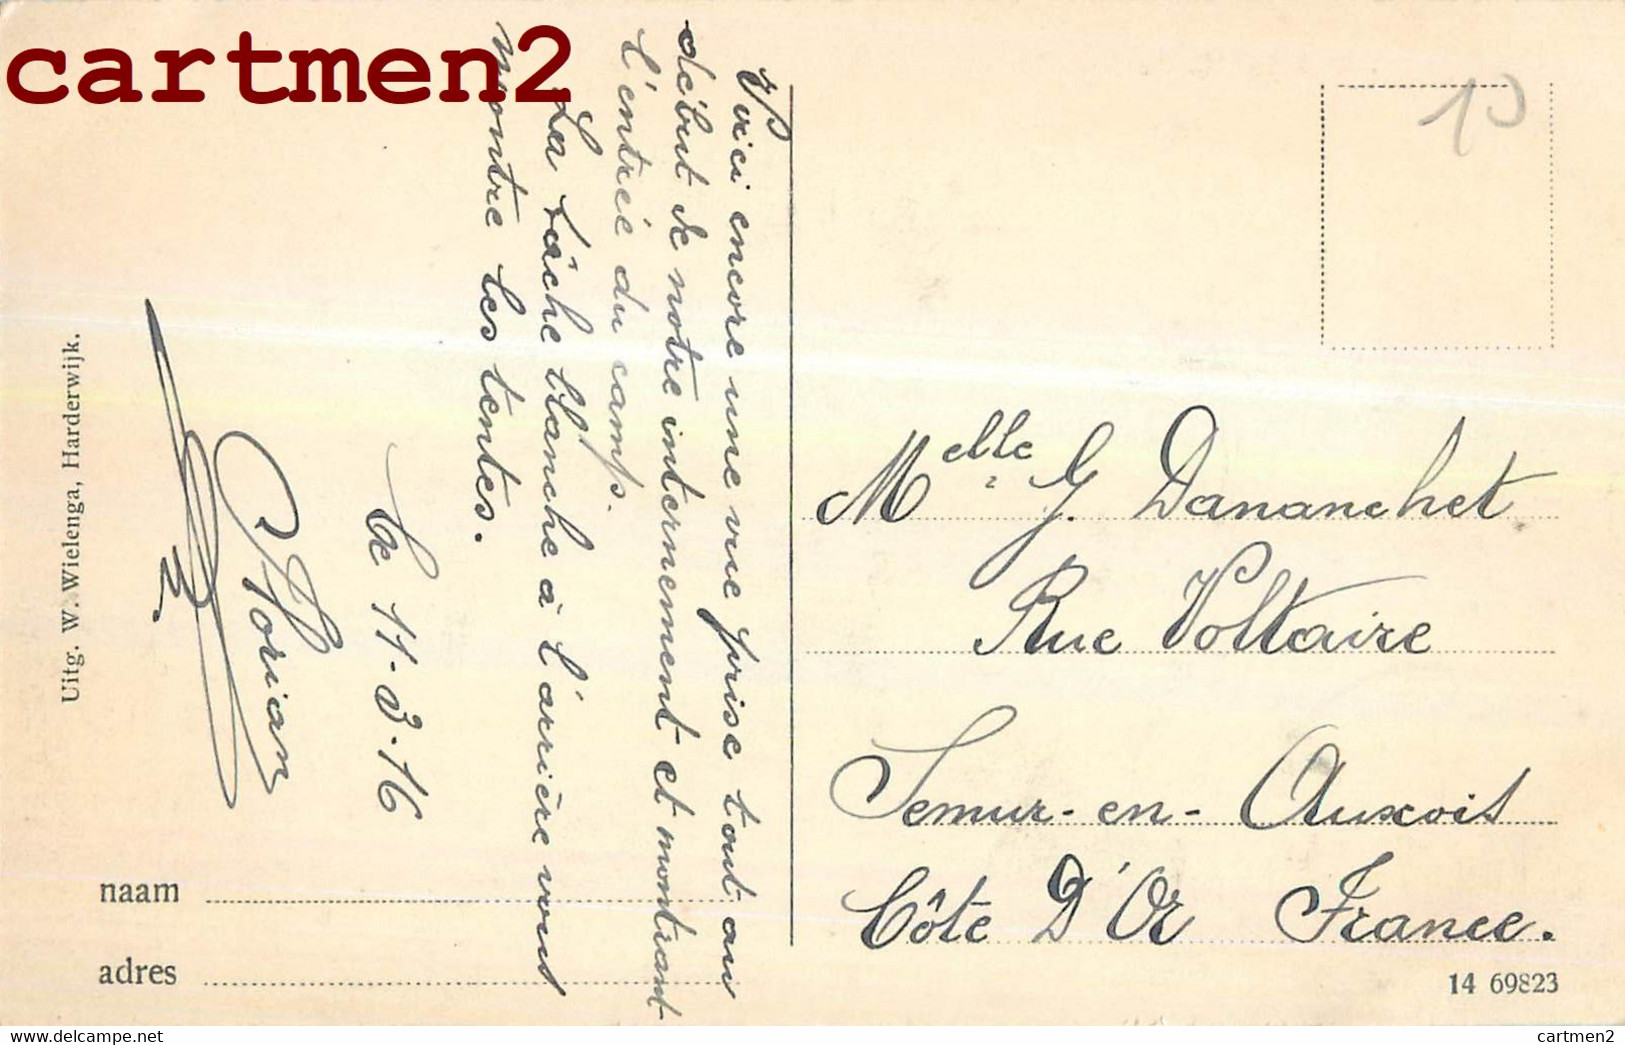 cartmen2
Voici encore une vue prise tout au
début de notre internement et montrant
l'entrée du camp.
La tâche blanche à l'arrière vous
montre les tentes.
Le 11-3-16
Uitg. W. Wielenga, Harderwijk.
naam
adres
10
Melle G. Dananchet
Rue Voltaire
Semur-en-Auxois
Côte D'Or France.
14 69823
cartmen2